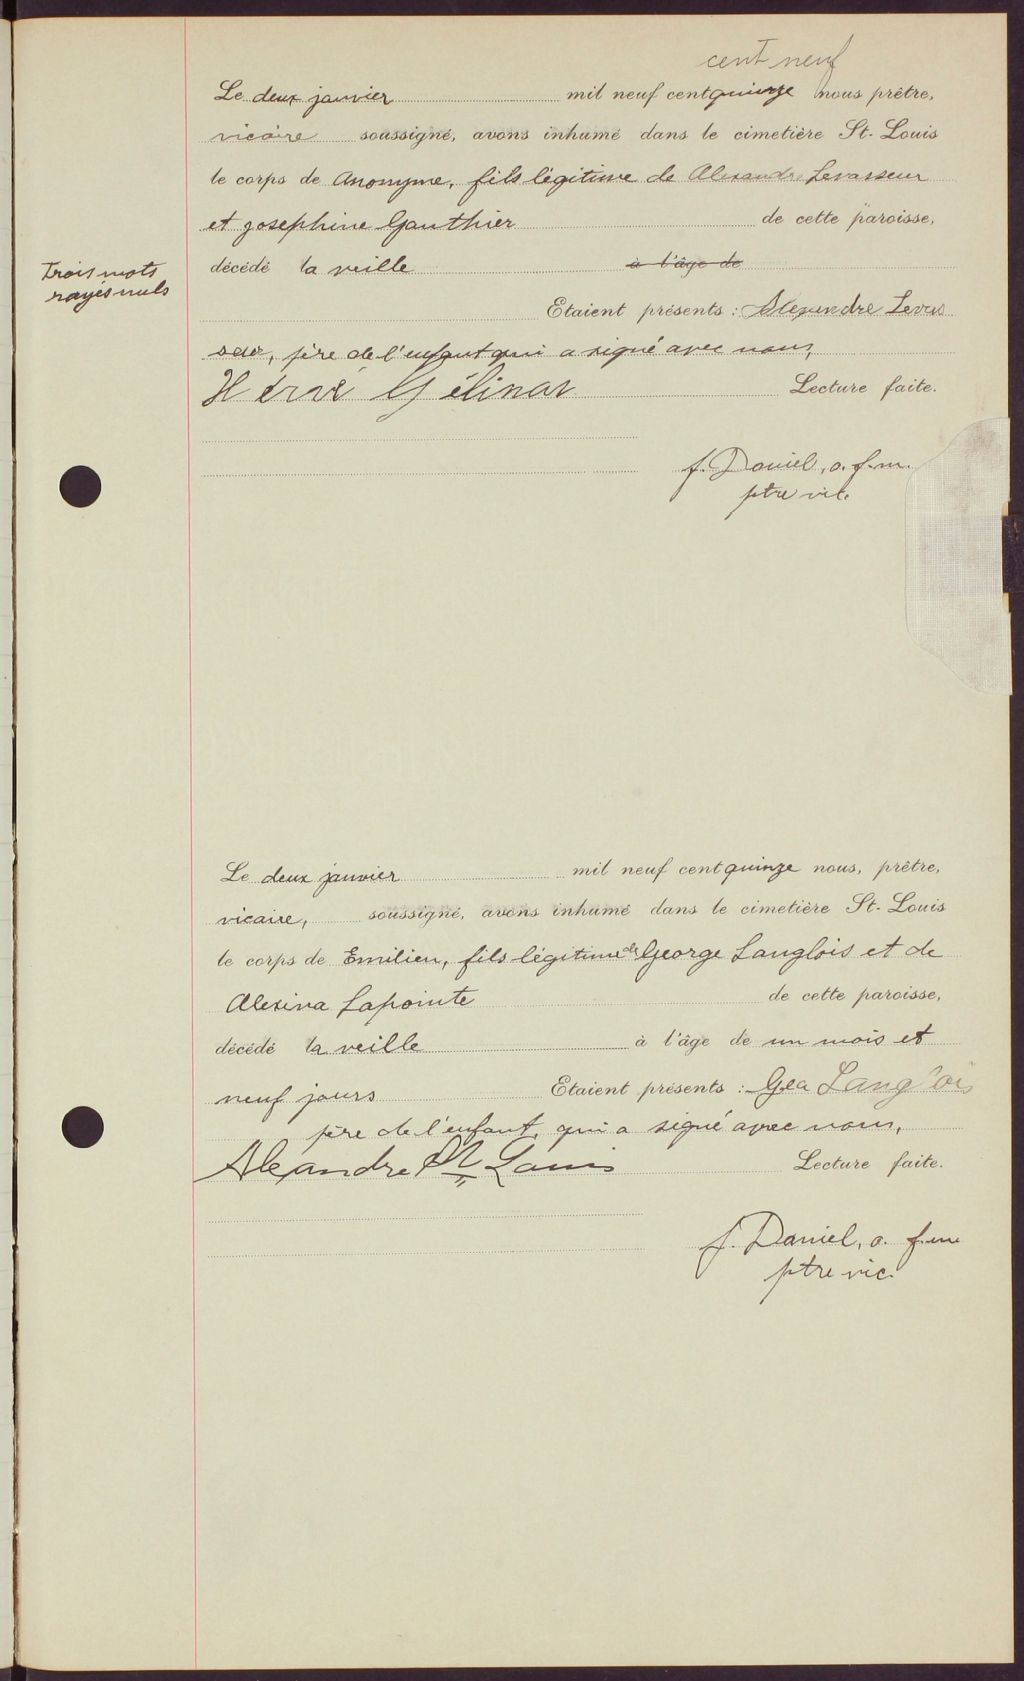 cent neuf
Le deux janvier mil neuf cent quinze nous prêtre,
vicaire soussigné, avons inhumé dans le cimetière St-Louis
le corps de Anonyme, fils légitime de Alexandre Levasseur
et Josephine Gauthier de cette paroisse,
décédé la veille à l'âge de
Trois mots
rayés nuls
Etaient présents : Alexendre Levas
seur, père de l'enfant qui a signé avec nous,
Hervé Gélinas Lecture faite.
f. Daniel, o.f.m.
ptre vic.
Le deux janvier mil neuf cent quinze nous, prêtre,
vicaire, soussigné, avons inhumé dans le cimetière St-Louis
le corps de Emilien, fils légitime de George Langlois et de
Alexina Lapointe de cette paroisse,
décédé la veille à l'âge de un mois et
neuf jours Etaient présents : Geo Langlois
père de l'enfant, qui a signé avec nous,
Alexandre St Louis Lecture faite.
f. Daniel, o. f.m
ptre vic.